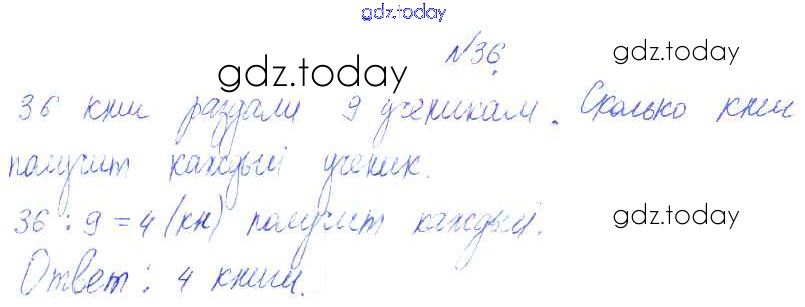 gdz.today
№36.
gdz.today gdz.today
36 книг раздали 9 ученикам. Сколько книг
получит каждый ученик.
36 : 9 = 4 (кн) получит каждый.
gdz.today
Ответ: 4 книги.